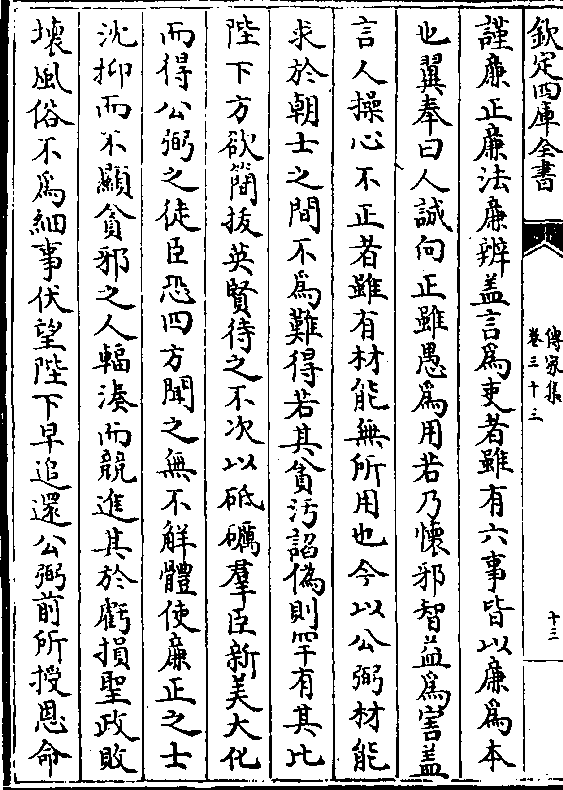 欽定四庫全書
傳家集
卷三十三
十三
謹廉正廉法廉辨盖言為吏者雖有六事皆以廉為本
也翼奉曰人誠向正雖愚為用若乃懷邪智益為害盖
言人操心不正者雖有材能無所用也今以公弼材能
求於朝士之間不為難得若其貪汚諂偽則罕有其比
陛下方欲簡拔英賢待之不次以砥礪羣臣新美大化
而得公弼之徒臣恐四方聞之無不解體使廉正之士
沈抑而不顯貪邪之人輻湊而競進其於虧損聖政敗
壊風俗不為細事伏望陛下早追還公弼前所授恩命